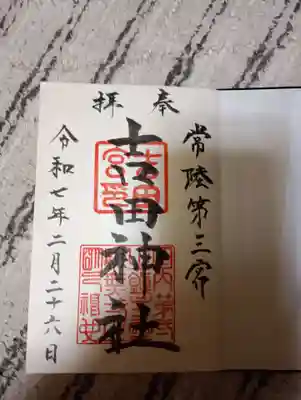 奉拝
常陸第三宮
吉田神社
令和七年二月二十六日